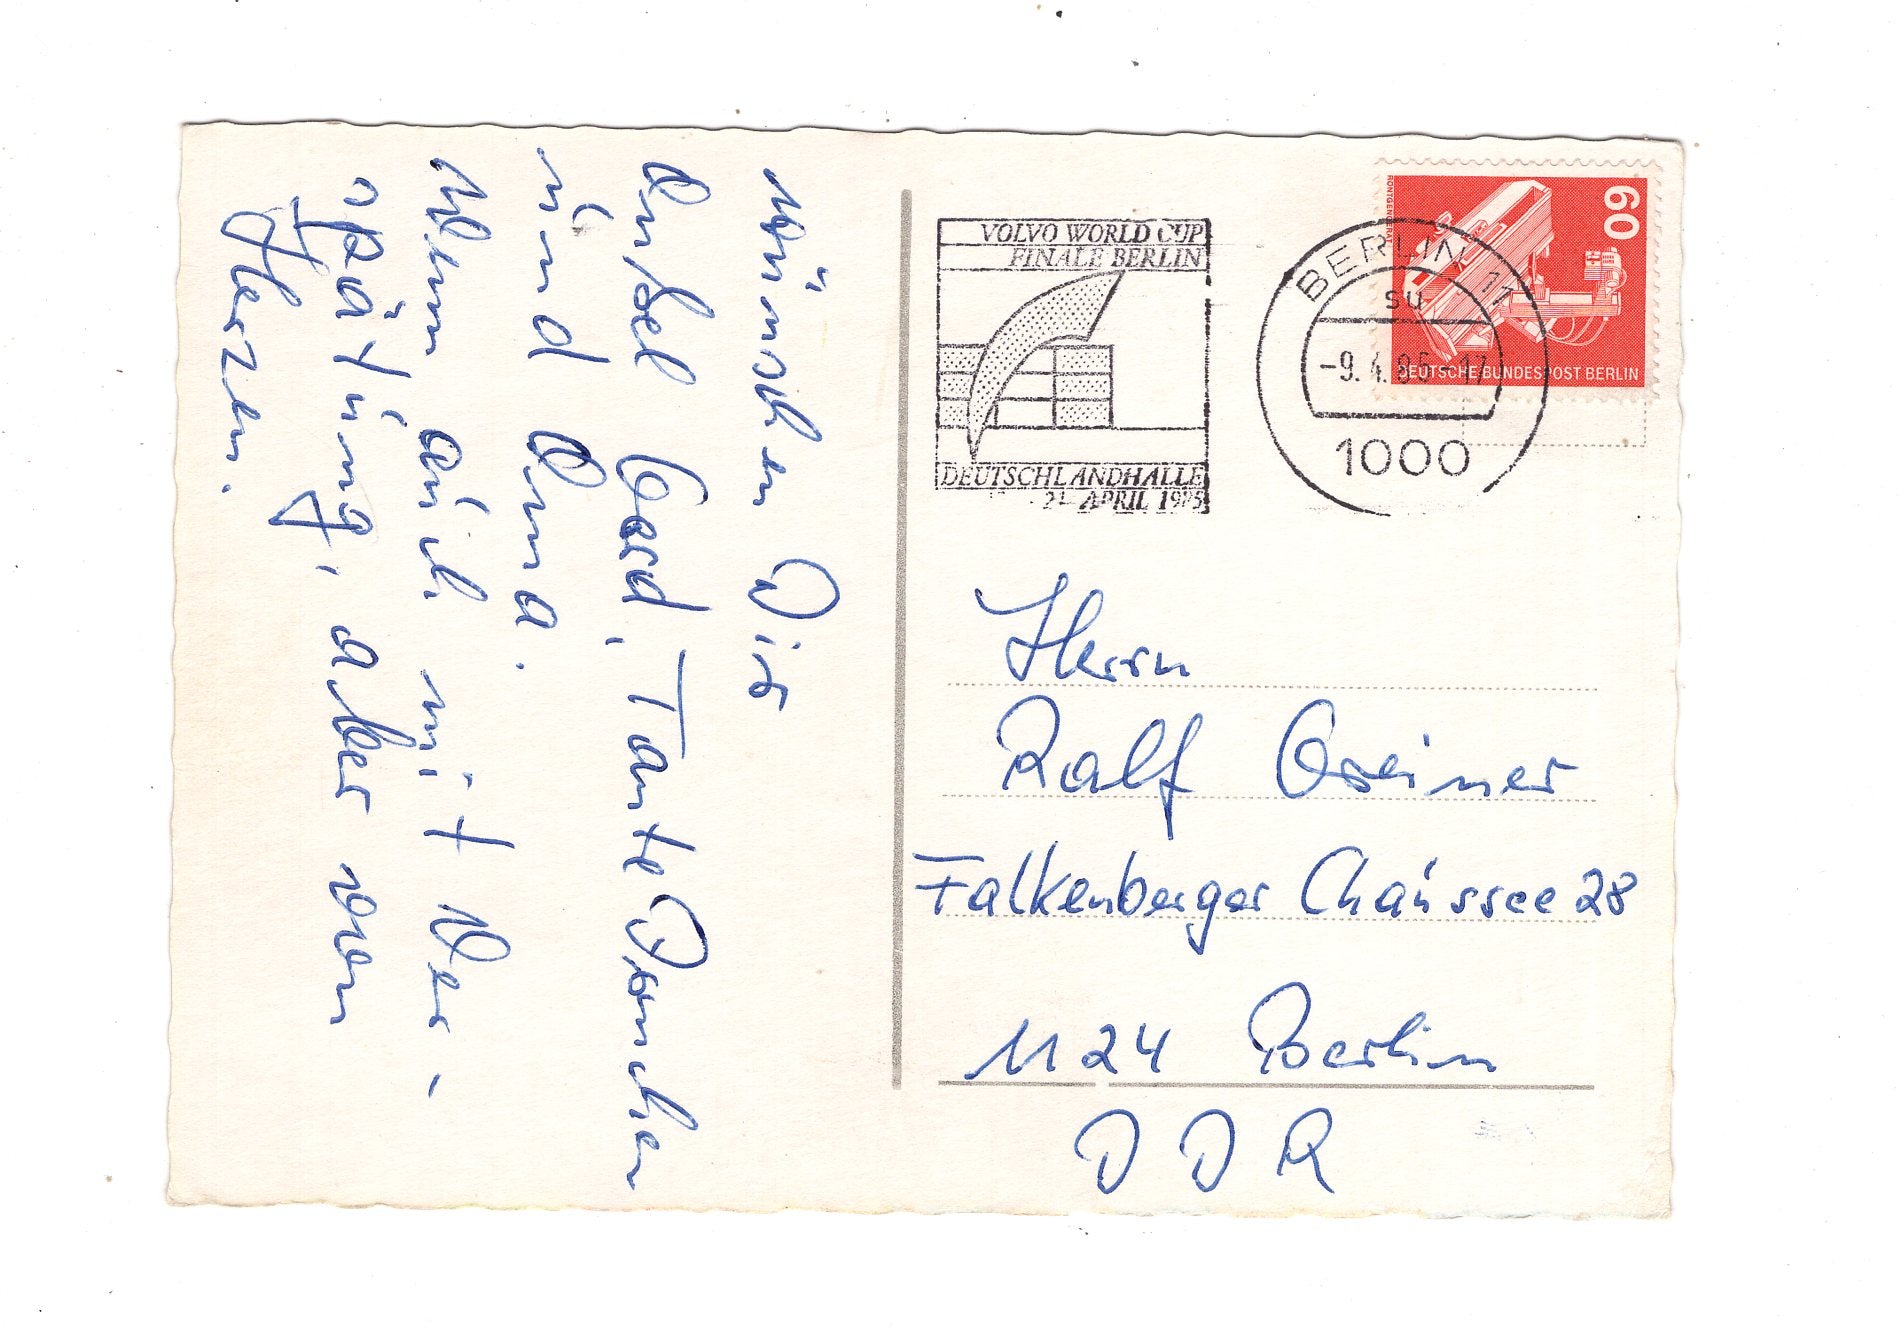 wünschen Dir
Onkel Gerd, Tante Dorchen
und Oma.
Wenn auch mit Ver-
spätung, aber von
Herzen.
VOLVO WORLD CUP
FINALE BERLIN
DEUTSCHLANDHALLE
21. APRIL 1985
BERLIN 17
su
-9.4.85-17
1000
RÖNTGENGERÄT
60
DEUTSCHE BUNDESPOST BERLIN
Herrn
Ralf Greiner
Falkenberger Chaussee 28
1124 Berlin
DDR